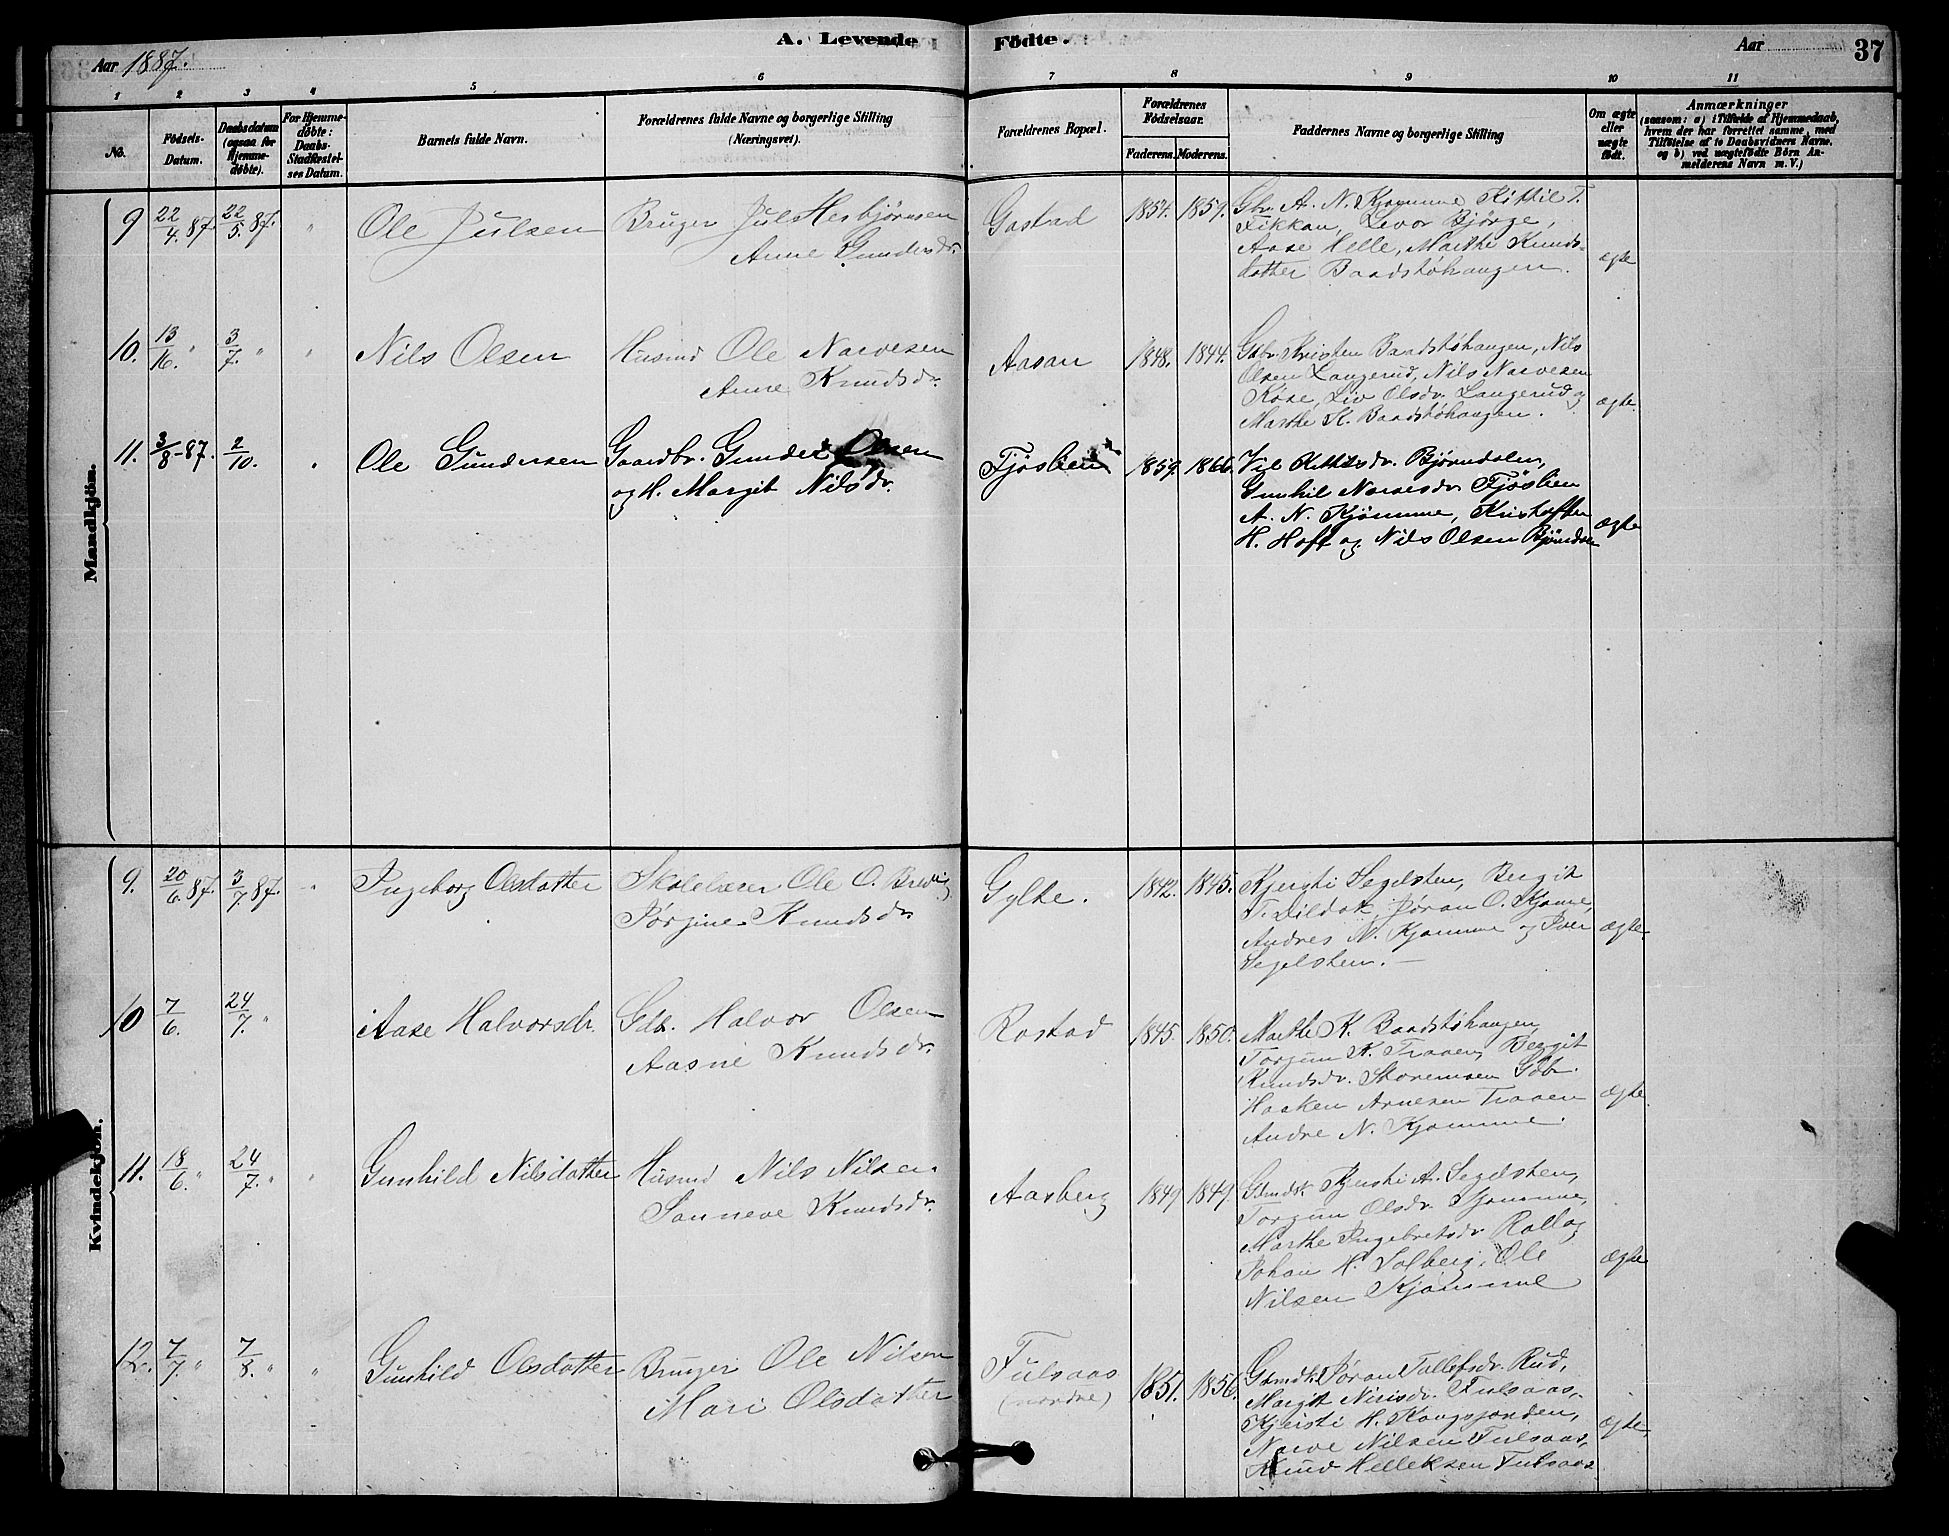 A. Levende Födte.
Aar 1887.
Aar
37
1 2 3 4 5 6 7 8 9 10 11
No.
Födsels-
Datum.
Daabsdatum
(ogsaa for
Hjemme-
døbte).
For Hjemme-
døbte:
Daabs-
Stadfæstel-
ses Datum.
Barnets fulde Navn.
Forældrenes fulde Navne og borgerlige Stilling
(Næringsvei).
Forældrenes Bopæl.
Forældrenes
Födselsaar.
Faderens. Moderens.
Faddernes Navne og borgerlige Stilling
Om ægte
eller
uægte
født.
Anmærkninger
(saasom: a) i Tilfælde af Hjemmedaab,
hvem der har forrettet samme, med
Tilføielse af to Daabsvidners Navne,
og b) ved uægtefødte Börn An-
melderens Navn m. V.)
Mandkjön.
9 22/4 87. 22/5 87. " Ole Julsen
Bruger Jul Hesbjörnsen
Anne Gundersdr.
Gastad 1854. 1859.
Gbr. A. N. Kjomme Kittil T.
Fikkan, Levor Bjørge,
Aase Helle, Marthe Knuds-
datter Baadstøhaugen.
ægte
10. 13/16. " 3/7. " " Nils Olsen
Husmd Ole Narvesen
Anne Knudsdr.
Aasan 1848. 1844.
Gdbr. Kristen Baadstøhaugen, Nils
Olsen Langerud, Nils Narvesen
Røse, Liv Olsdr. Langerud og
Marthe K. Baadstøhaugen.
ægte.
11. 3/8-87. 2/10. " Ole Gundersen
Gaardbr. Gunder Olsen
og H. Margit Nilsdr.
Fjøslien 1859. 1866.
Kittilsdr. Bjørndalen,
Gunhil Narvesdr Fjøslien
A. N. Kjömme, Kristoffer
H. Hoff og Nils Olsen
ægte
Kvindekjön.
9. 20/6. 87. 3/7. 87. " Ingeborg Olsdatter
Skolelærer Ole O.
Jørgine Knudsdr
Gylte. 1842. 1845.
Kjersti Segelsten, Bergit
T. Jøran O. Kjome,
Andres N. Kjomme og Iver
Segelsten. —
ægte.
10 7/6. 24/7. " Aase Halvorsdr.
Gdb. Halvor Olsen
Aasne Knudsdr.
Rostad 1845. 1850.
Marthe K. Baadstøhaugen,
Torgun K. Traaen, Bergit
Knudsdr. Storemoen Gdb.
Haaken Arnesen Traaen
Andre N. Kjomme.
ægte.
11. 18/6. " 24/7. " " Gunhild Nilsdatter
Husmd Nils Nilsen.
Sanneve Knudsdr.
Aasberg 1849 1849.
Gdmdsk Kjersti A. Segelsten,
Torgun Olsdr. Kjomme,
Marthe Ingebretsdr Rollag
Johan H. Solberg, Ole
Nilsen Kjømme
ægte
12. 7/7. " 7/8. " " Gunhild Olsdatter
Bruger Ole Nilsen
Mari Olsdatter
Fulsaas
(nordre)
1851. 1856.
Gdmdk. Jøran Tollefsdr. Rud,
Margit Nirisdr. Fulsaas,
Kjersti H. Kongsjorden,
Narve Nilsen Fulsaas,
Knud Helleksen Fulsaas
ægte.